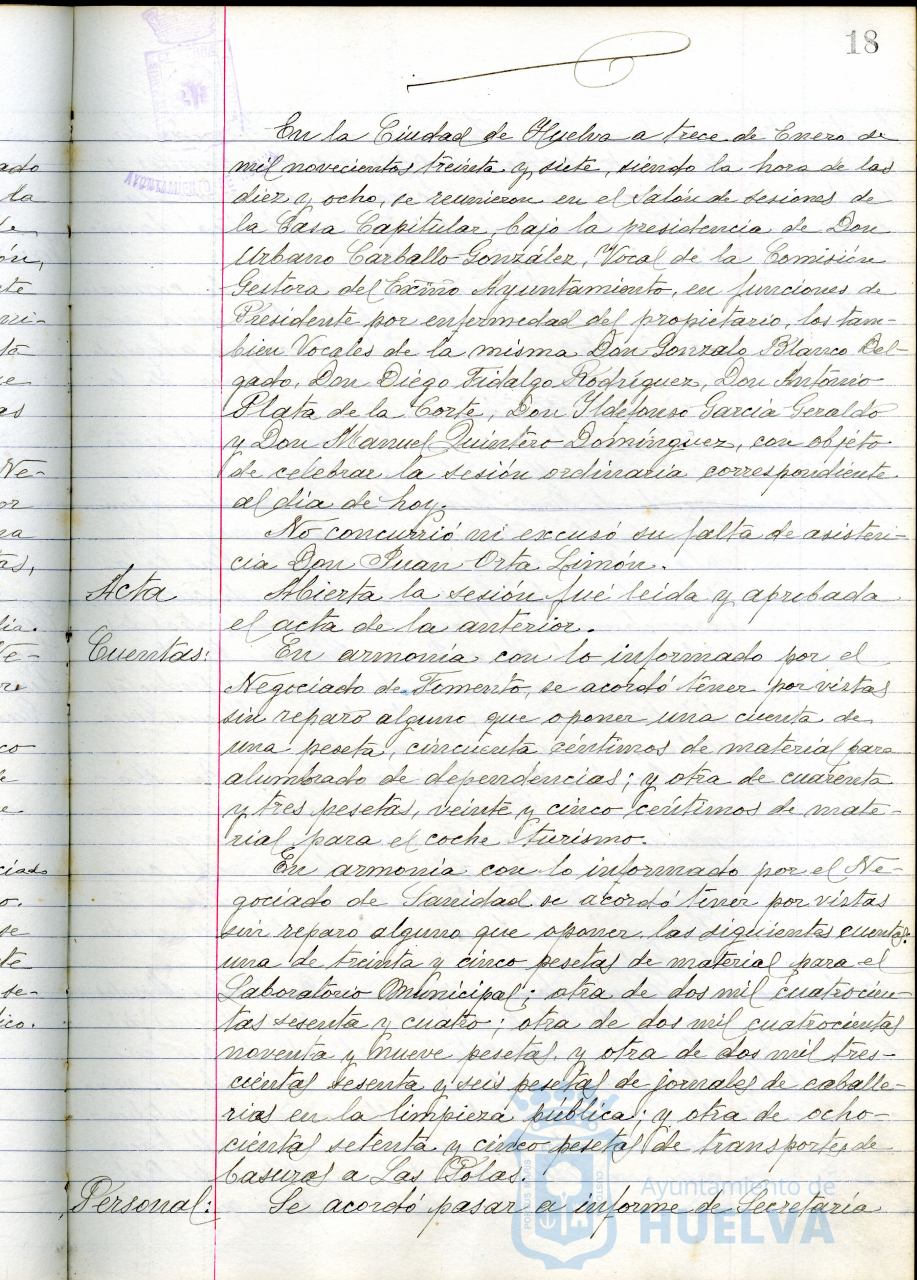 18
En la Ciudad de Huelva a trece de Enero de
mil novecientos treinta y siete, siendo la hora de las
diez y ocho, se reunieron en el Salón de sesiones de
la Casa Capitular, bajo la presidencia de Don
Urbano Carballo González, Vocal de la Comisión
Gestora del Excmo Ayuntamiento, en funciones de
Presidente por enfermedad del propietario, los tam-
bien Vocales de la misma Don Gonzalo Blanco Del-
gado, Don Diégo Fidalgo Rodríguez, Don António
Plata de la Corte, Don Ildefonso García Geraldo
y Don Manuel Quintero Domínguez, con objeto
de celebrar la sesión ordinaria correspondiente
al día de hoy.
No concurrió ni excusó su falta de asisten-
cia Don Juan Orta Limón.
Acta
Abierta la sesión fué leída y aprobada
el acta de la anterior.
Cuentas:
En armonía con lo informado por el
Negociado de Fomento, se acordó tener por vistas
sin reparo alguno que oponer una cuenta de
una peseta, cincuenta céntimos de material para
alumbrado de dependencias; y otra de cuarenta
y tres pesetas, veinte y cinco céntimos de mate-
rial para el coche turismo.
En armonía con lo informado por el Ne-
gociado de Sanidad se acordó tener por vistas
sin reparo alguno que oponer las siguientes cuentas:
una de treinta y cinco pesetas de material para el
Laboratorio Municipal; otra de dos mil cuatrocien-
tas sesenta y cuatro; otra de dos mil cuatrocientas
noventa y nueve pesetas, y otra de dos mil tres-
cientas sesenta y seis pesetas de jornales de caballe-
rias en la limpieza pública; y otra de ocho-
cientas setenta y cinco pesetas de transportes de
basuras a Las Polas.
Personal:
Se acordó pasar a informe de Secretaría
Ayuntamiento de
HUELVA